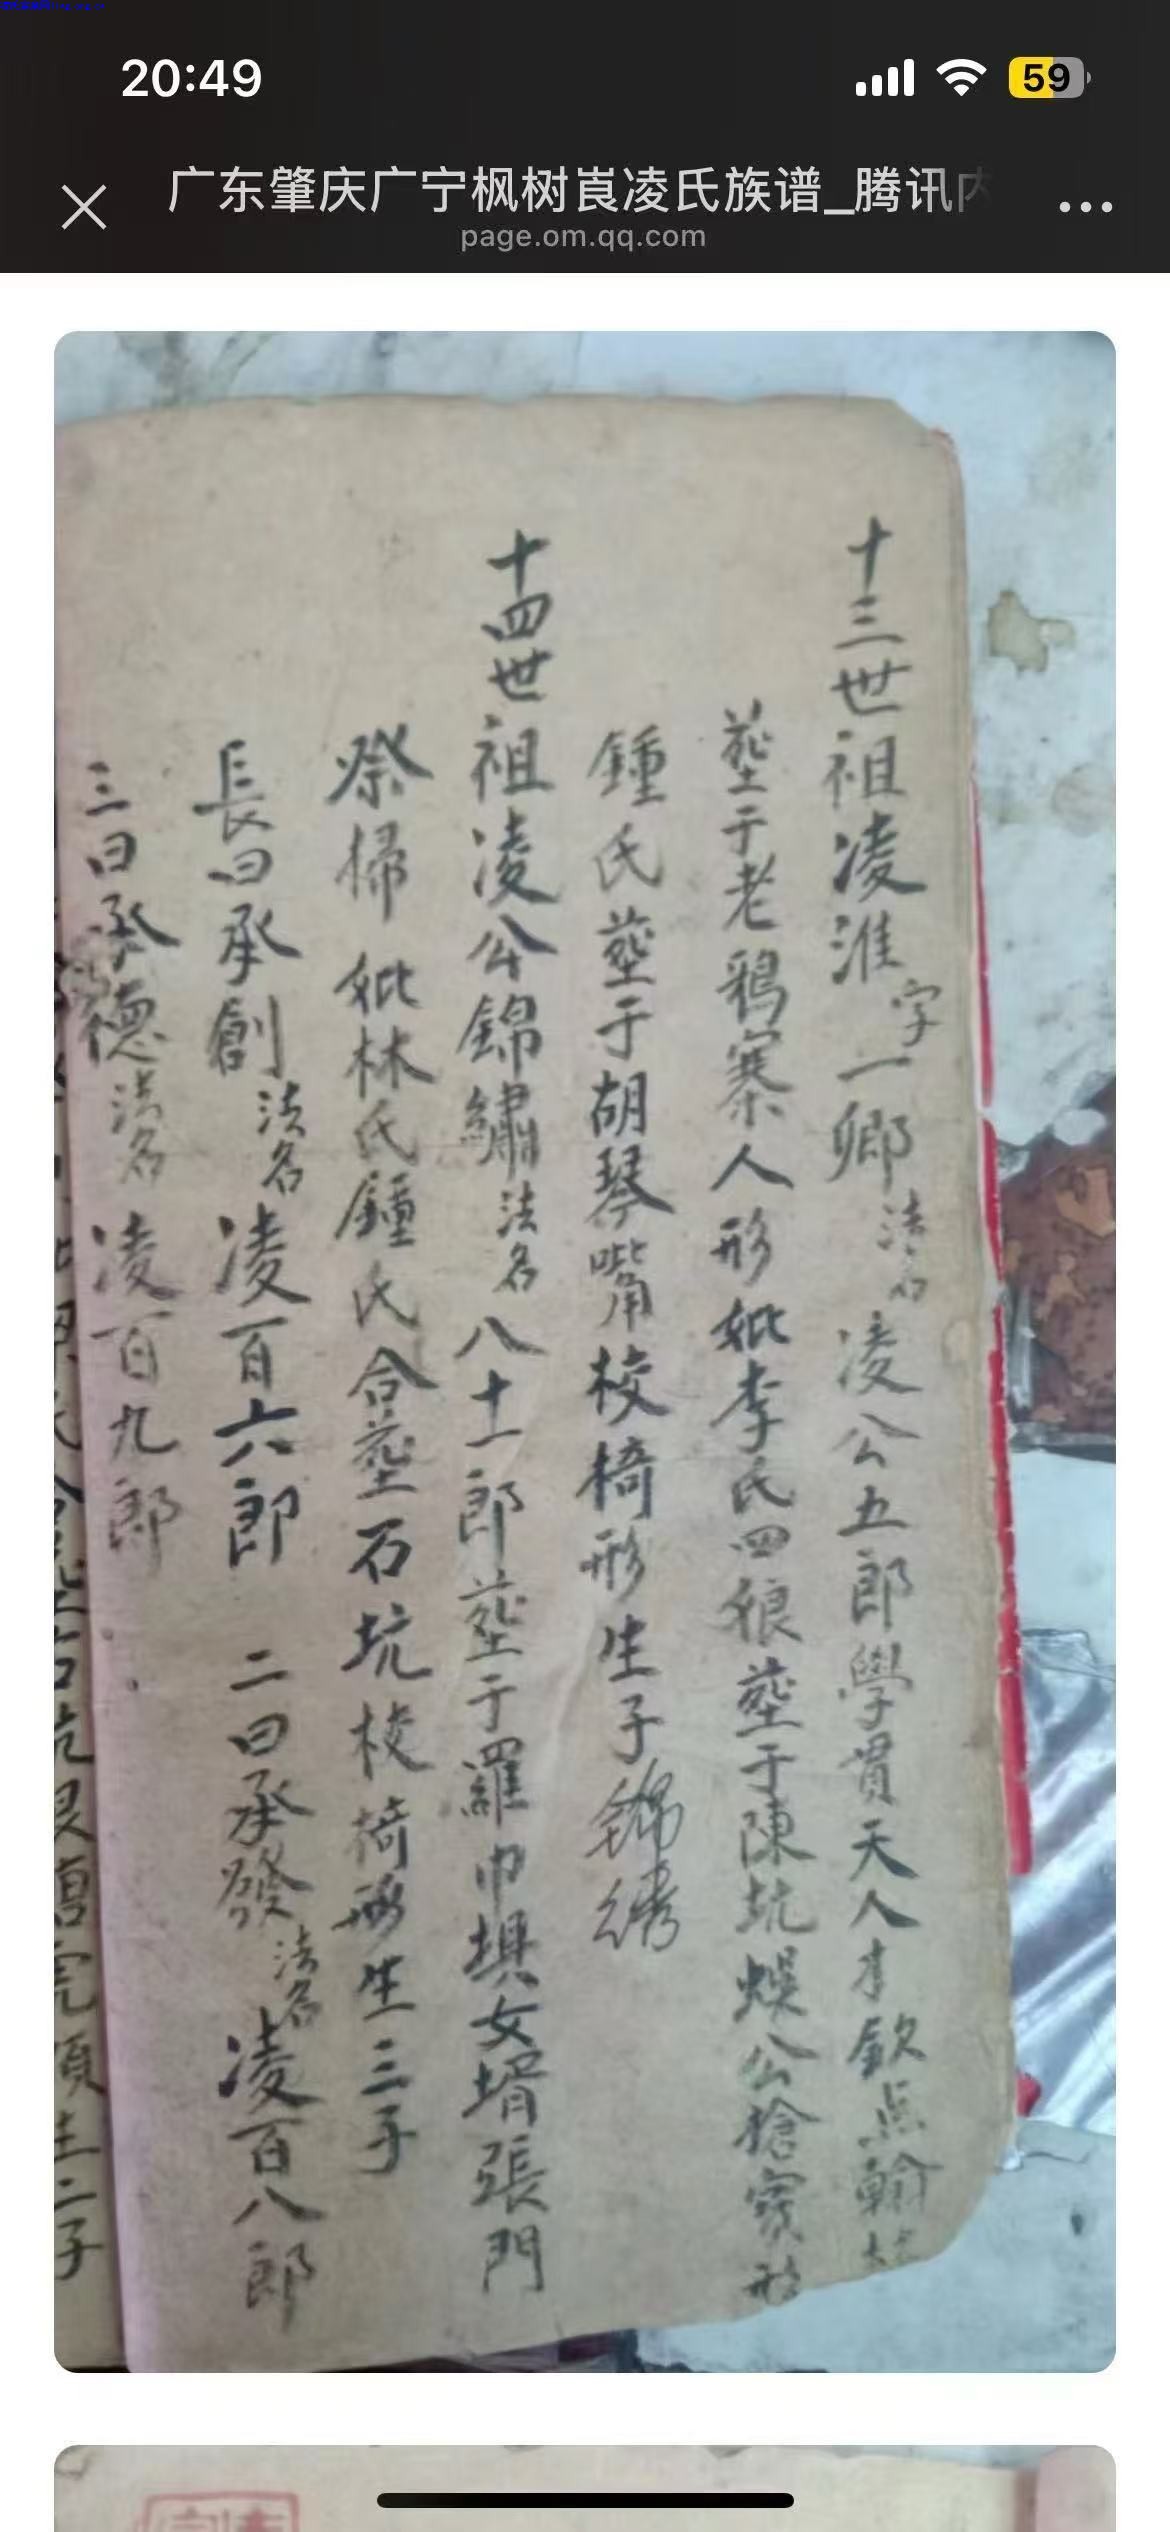 20:49
59
广东肇庆广宁枫树崀凌氏族谱_腾讯内
page.om.qq.com
十三世祖凌淮字一鄉法名凌公五郎學貫天人才欽点翰林
塟于老鴉寨人形妣李氏四娘塟于陳坑蜈公擒寔形
鍾氏塟于胡琴嘴校椅形生子錦綉
十四世祖凌公錦繡法名八十一郎塟于羅巾垻女壻張門
祭掃妣林氏鍾氏合塟石坑校椅形生三子
長曰承創法名凌百六郎 二曰承發法名凌百八郎
三曰承德法名凌百九郎